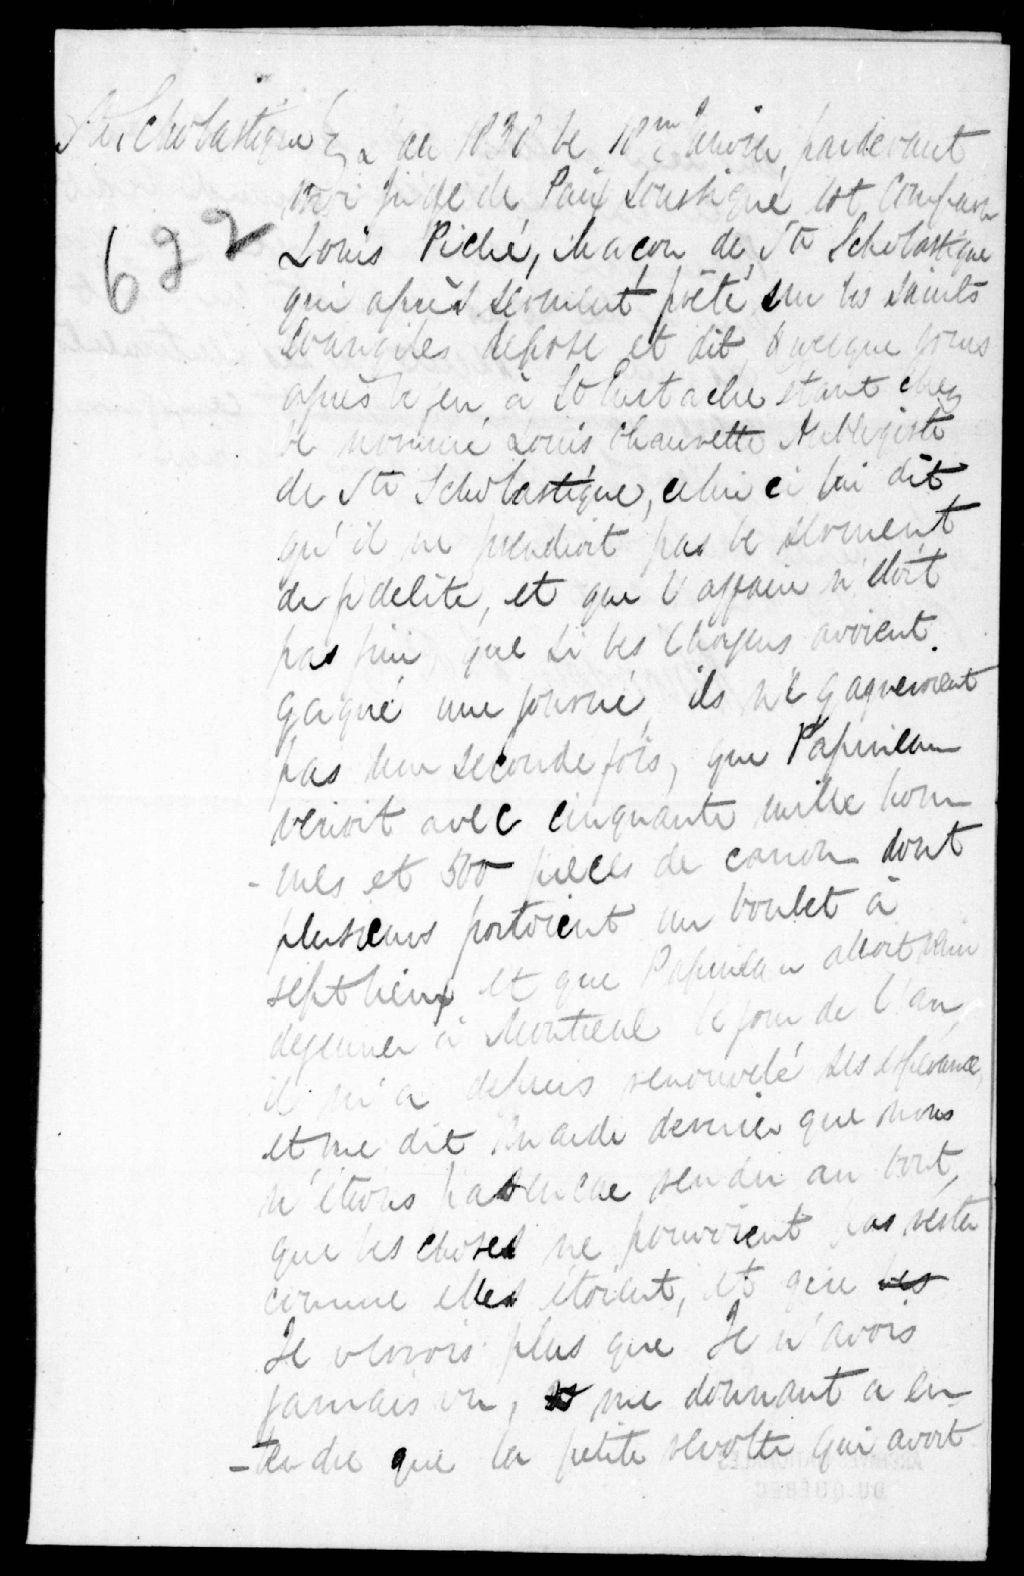 Ste Scholastique } L'an 1838 le 18me Janvier pardevant
moi juge de Paix Soussigné est Comparu
Louis Piché, Macon de Ste Scholastique
qui après serment prêté sur les saints
Evangiles depose et dit, quelque jours
après le feu à St Eustache étant chez
le nommé Louis Chaurette Aubergiste
de Ste Scholastique, celui ci lui dit
qu'il ne prendroit pas le serment
de fidelité, et que l'affaire n'étoit
pas fini, que si les Choyens avoient
gagné une journé, ils n'e gagneroient
pas une seconde fois, que Papineau
venoit avec cinquante mille hom
-mes et 500 pieces de canon dont
plusieurs portoient un boulet à
sept lieux et que Papineau alloit venir
dejeuner à Montreal le jour de l'an,
il m'a depuis renouvelé ses esperance,
et me dit Mardi dernier que nous
n'étions pas encore rendu au bout,
que les choses ne pouvoient pas rester
comme elles étoient, et que
Je verrois plus que Je n'avois
jamais vu, me donnant a en
-tendre que la petite revolte qui avoit
622
DU QUÉBEC